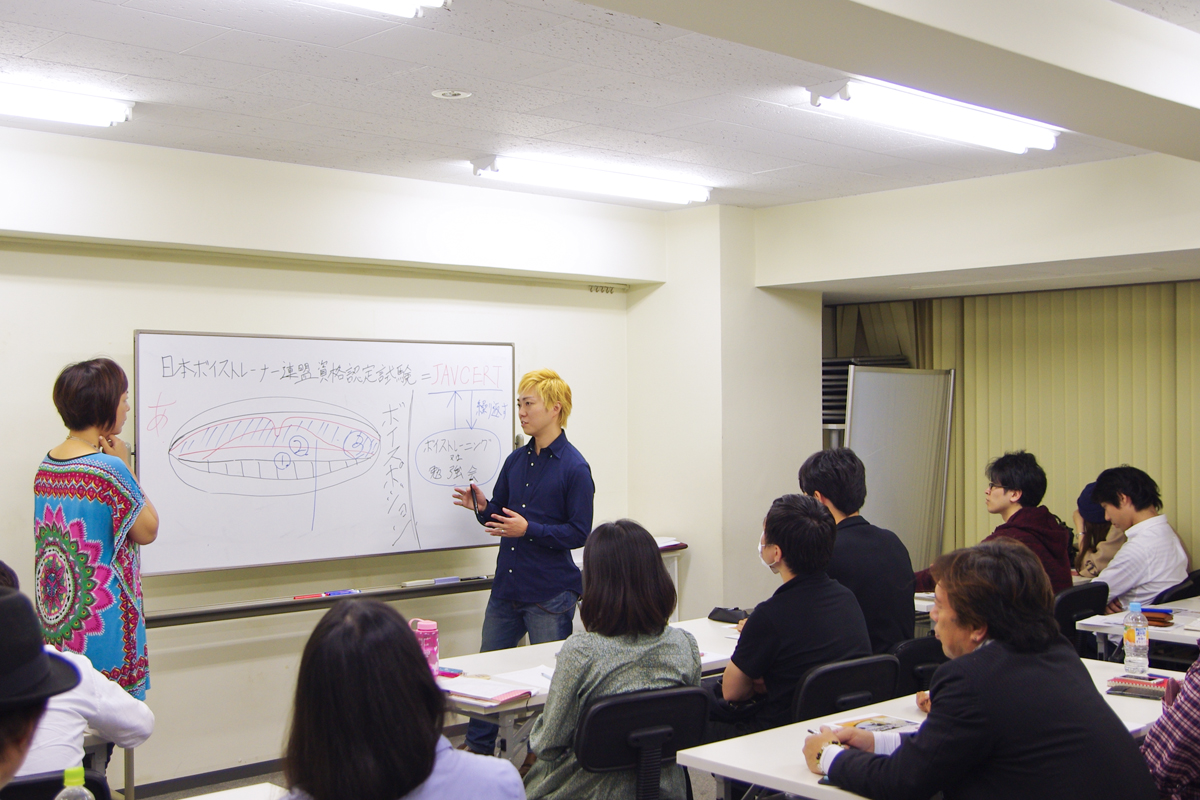 日本ボイストレーナー連盟資格認定試験=JAVCERT
あ
①
②
③
ボイスポジション
繰り返す
ボイストレーニング
又は
勉強会